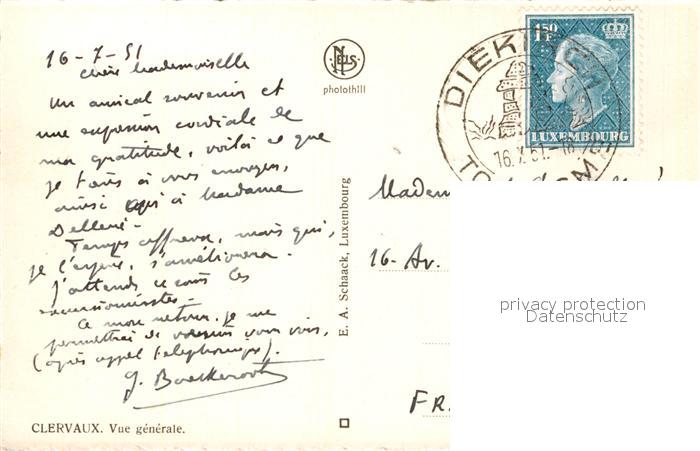 16-7-51
chère Mademoiselle
Un amical souvenir et
une expression cordiale de
ma gratitude, voilà ce que
je tiens à vous envoyer,
ainsi qu'à Madame
Temps affreux, mais qui,
je l'espère, s'améliorera.
J'attends ce soir les
excursionnistes.
A mon retour, je me
permettrai de vous voir,
(après appel téléphonique).
CLERVAUX. Vue générale.
NELS
photothill
E. A. Schaack, Luxembourg
DIEKIRCH
TOURISME
16.7.51
1,50 F
LUXEMBOURG
Madem
16-Av.
FR
privacy protection
Datenschutz